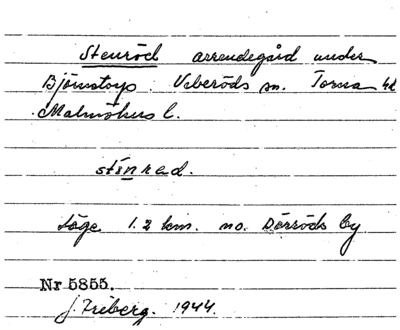 Stenröd arrendegård under
Björnstorp. Veberöds sn. Torna hd
Malmöhus l.
stínrad.
Läge 1.2 km. no. Dörröds by
Nr 5855.
J. Friberg. 1944.